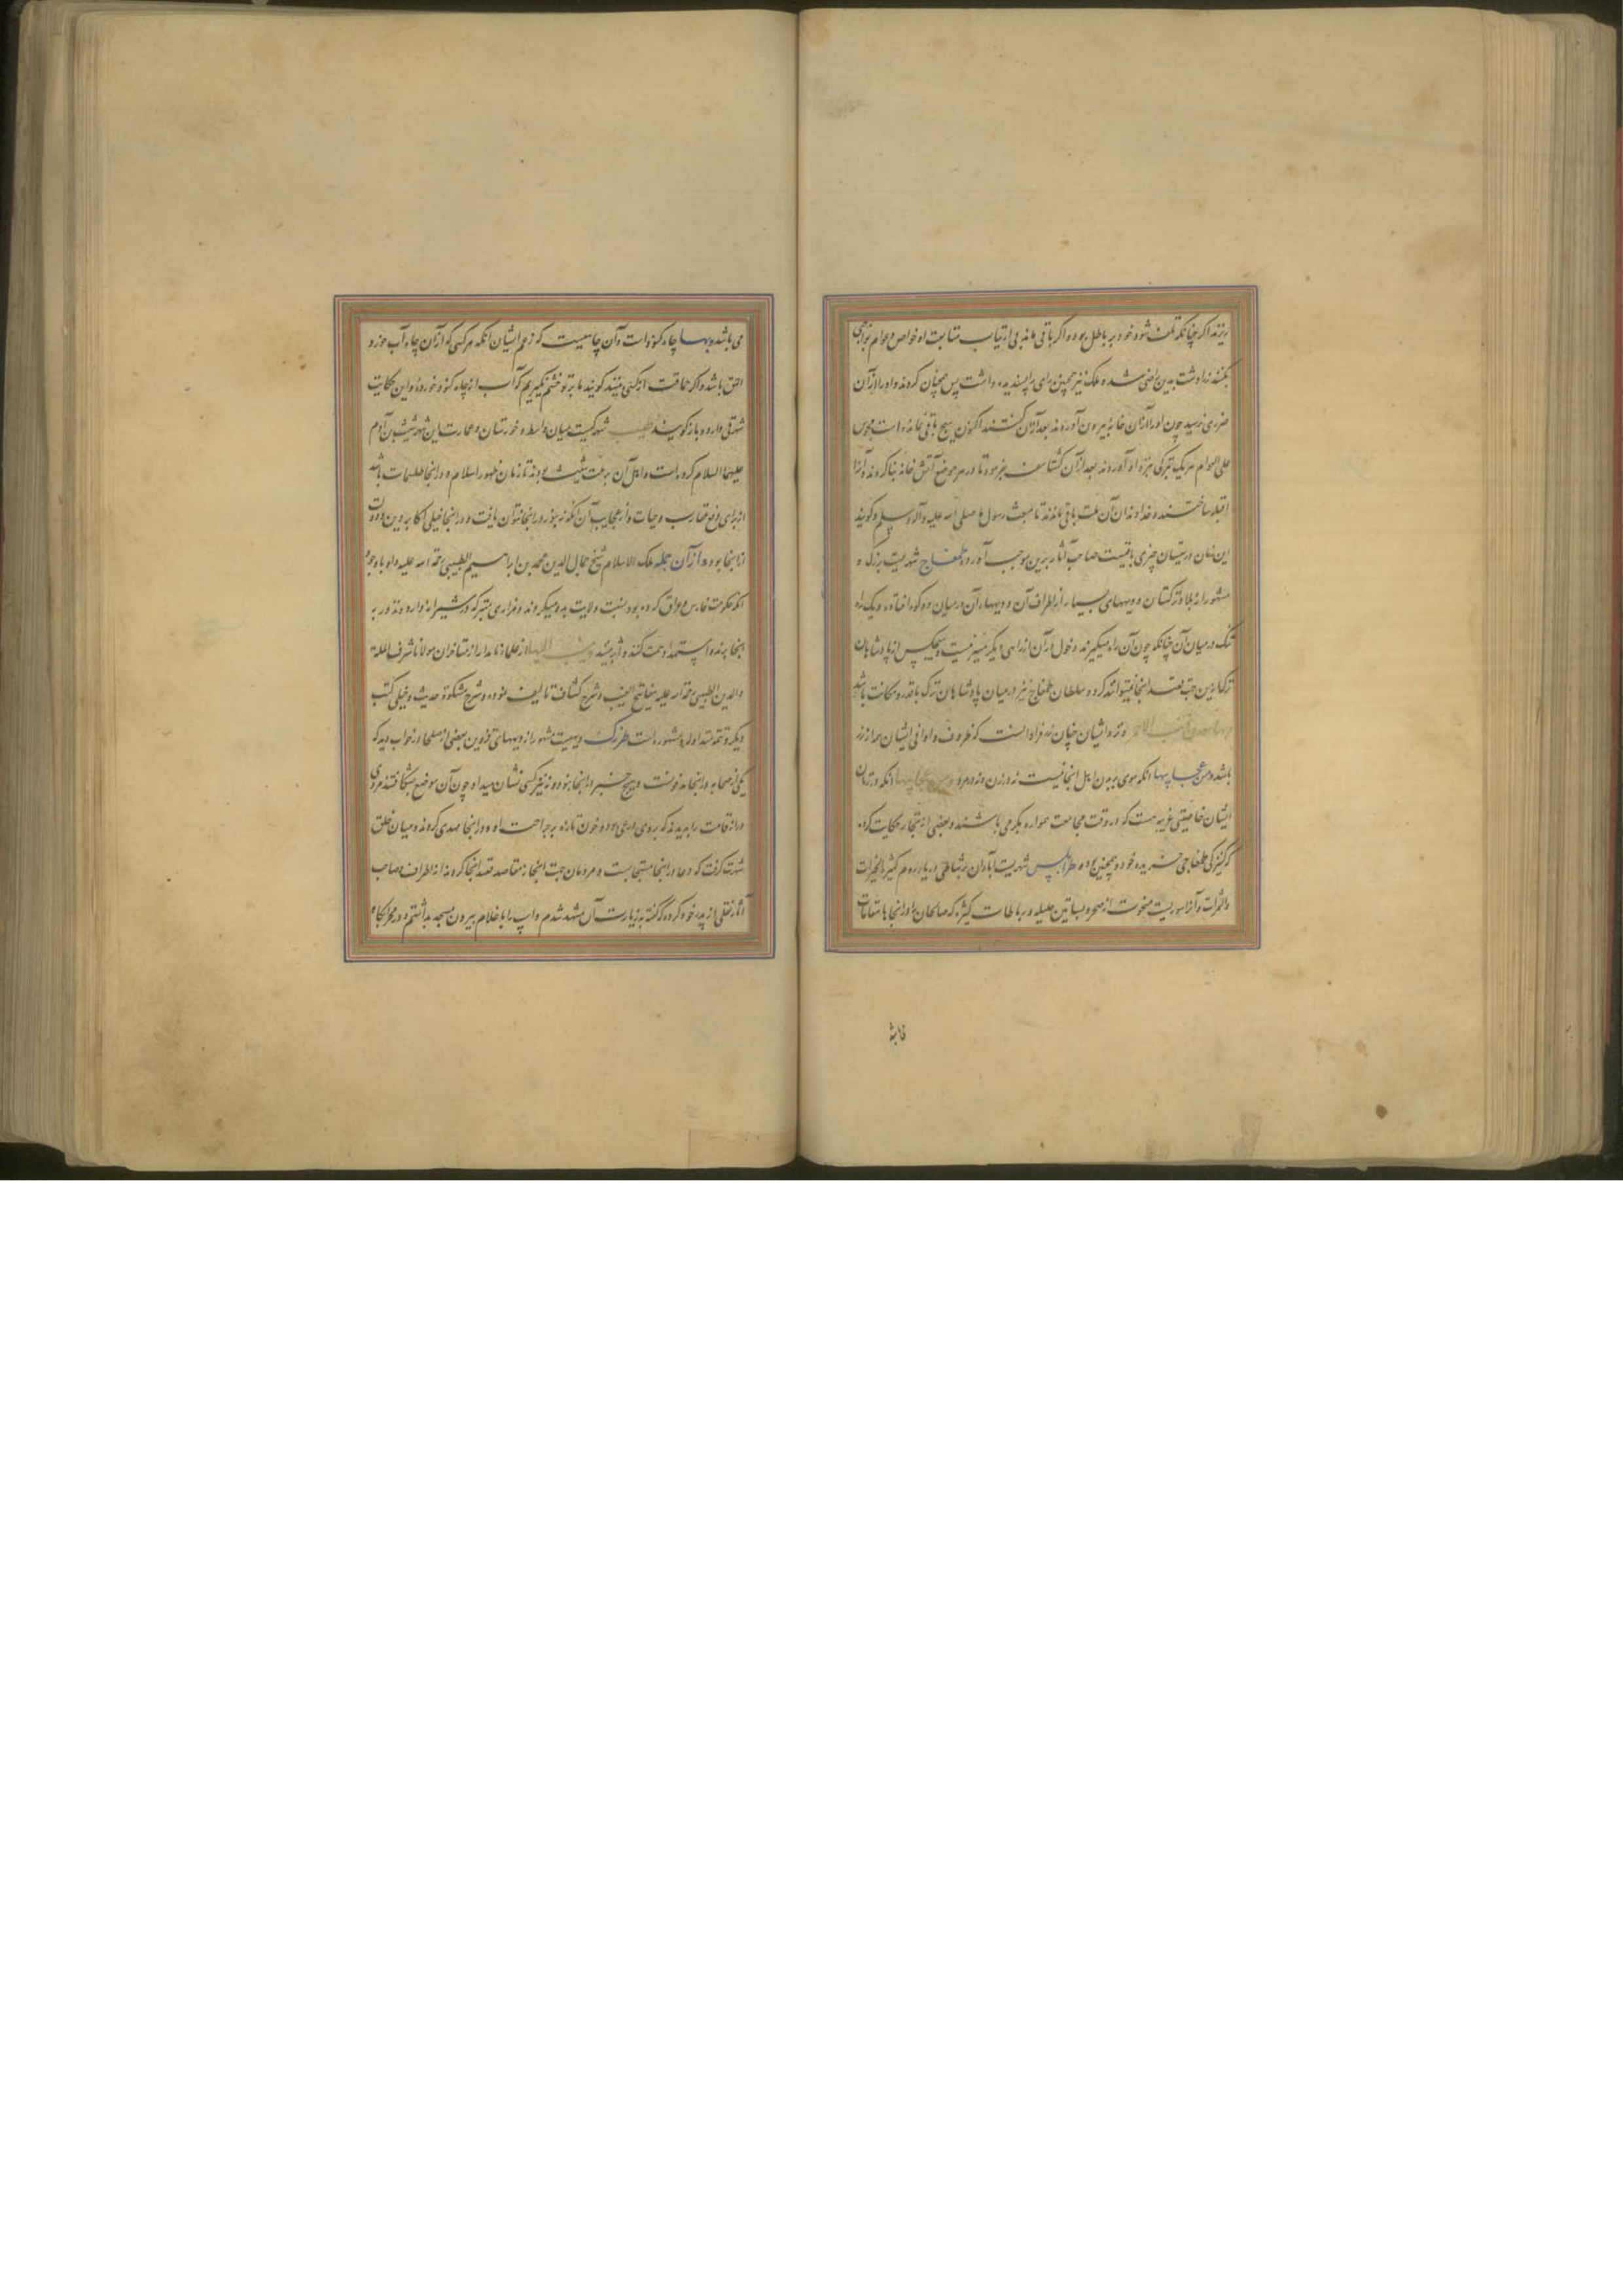 ریزند اگر چنانکه تلف شود خود بر باطل بود و اگر باقی ماند بی ارتیاب متابعت او خواص و عوام بواجبی
بکنند زرادشت بدین راضی شد و ملک نیز همچنین رای را پسندیده داشت پس همچنان کردند و او را از آن
ضرری نرسید چون او را از آن خانه بیرون آوردند بعد از آن گفتند اکنون هیچ باقی نمانده است مجوس
علی الدوام هر یک تبرکی همراه آوردند بعد از آن کشتاسف بفرمود تا در هر موضع آتش خانه بنا کردند و آنرا
قبله ساختند و خداوندان آن ملت باقی ماندند تا مبعث رسول ما صلی الله علیه وآله وسلم و گویند
این زمان در سیستان چیزی باقیست صاحب آثار برین موجب آورده طمغاج شهریست بزرگ و
مشهور از بلاد ترکستان و دیههای بسیار از اطراف آن و دیهها آن در میان دو کوه افتاده و یک راه
تنک در میان آن چنانکه چون آن راه میگیرند دخول در آن از راهی دیگر میسر نیست و هیچکس از پادشاهان
ترک ازین جهت قصد اینجا نیتوانند کرد و سلطان طمغاج نیز در میان پادشاهان ترک با قدر و مکانت باشد
و نزد ایشان چنان زر فراوانست که ظروف و اوانی ایشان همه از زر
باشد ومن عجایبها آنکه موی بر بدن اهل اینجا نیست نه در زن و نه در مرد ومن عجایبها آنکه در زنان
ایشان خاصیتی غریبه هست که در وقت مجامعت همواره بکر می باشند و بعضی از تجار حکایت کرده
که کنیزکی طمغاجی خریده خود و همچنین بوده طرابلس شهریست آبادان بر شاطی دریا روم کثیر الخیرات
والثمرات و آنرا سوریست منحوت از صخر و بساتین جلیله و رباطات کثیره که صالحان را در اینجا مقامات
فاشد
می باشد وبها چاه کنود است و آن چاهیست که زعم ایشان آنکه هر کسی که از آن چاه آب خورد
احمق باشد و اگر حماقت از کسی بینند گویند ما بر تو خشم نگیریم که آب از چاه کنود خورده و این حکایت
شهرتی دارد و باز گویند طیب شهرکیست میان واسط و خوزستان و عمارت این شهر شیث بن آدم
علیهما السلام کرده است و اهل آن بر ملت شیث بودند تا زمان ظهور اسلام و در اینجا طلسمات باشد
از برای دفع عقارب و حیات و از عجایب آن آنکه زنبور در اینجا نتوان یافت و در اینجا خیلی اکابر دین و دولت
از اینجا بوده از آن جمله ملک الاسلام شیخ جمال الدین محمد بن ابراهیم الطیبی رحمة الله علیه و او با وجود
آنکه حکومت فارس و عراق کرده بود نسبت ولایت بدو میکردند و مزاری متبرکه در شیراز دارد و نذور به
اینجا برند و استمداد همت کنند و اثر بینند وینسب الیها از علماء نامدار از متاخران مولانا شرف الملة
والدین الطیبی رحمة الله علیه مفاتیح الغیب و شرح کشاف تالیف نموده و شرح مشکوة حدیث و خیلی کتب
دیگر و تمه متداوله و مشهوره است طرزک دیهیست مشهور از دیههای قزوین بعضی از صلحا در خواب دید که
یکی از صحابه در اینجا مدفونست و هیچ خبر در اینجا نبود و نه نیز کسی نشان میداد چون آن موضع بشکافتند مردی
دراز قامت را بدیدند که بروی درعی بود و خون تازه بر جراحت او و در اینجا مشهدی کردند و میان خلق
شهرت گرفت که دعا در اینجا مستجابست و مردمان جهت انجاز مقاصد قصد اینجا کردند از اطراف و صاحب
آثار نقلی از پدر خود کرده که گفته به زیارت آن مشهد شدم و اسپ را با غلام بیرون مسجد بداشتم و در سحرگاه